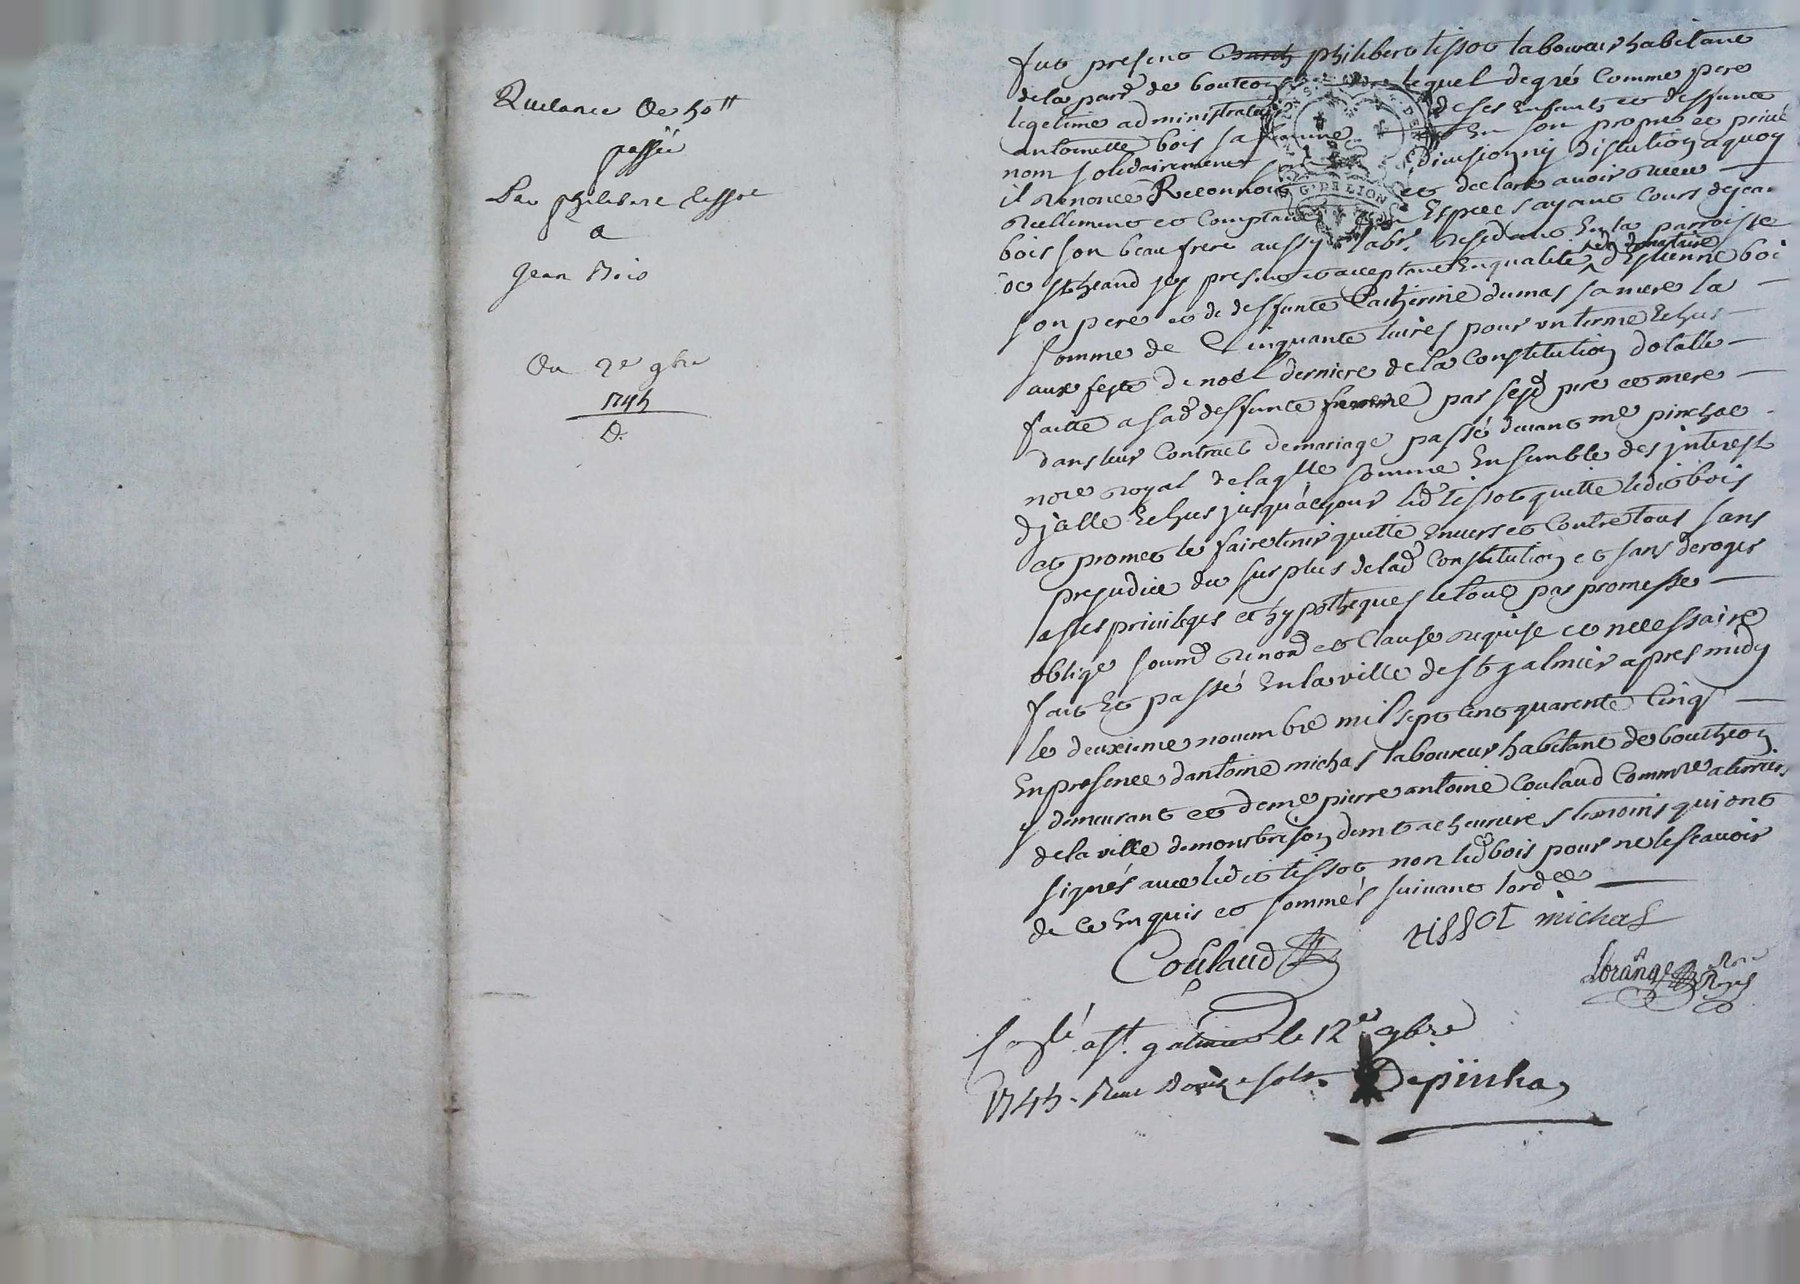 Quitance de 50tt
passée
Par philibert tissot
a
Jean Bois
Du 2e 9bre
1745
D.
fut present philibert tissot laboureur habitant
de la parr de bouteon lequel degré comme pere
legitime administrateur de ses enfants et deffunte
antoinette bois sa femme en son propre et privé
nom solidairement division ny discution aquoy
il renonce Reconnoit et declare avoir receu
reellement et comptant Especes ayant Cours dejean
bois son beau frere aussy labr. resident En la parroisse
de st heand icy present et acceptant Enqualité d'Estienne bois
donataire
son pere et de deffunte Catherine dumas sa mere la
somme de Cinquante livres pour un terme Echus
aux feste de noel derniere de la Constitution dotalle
faitte a sad deffunte femme par sesd pere et mere
dans leur Contract demariage passé devant me pinchac
nore royal de laqlle somme Ensemble des jnterest
dj'elle Echus jusqu'acejour led tissot quitte ledit bois
et promet le faire tenir quitte Envers et Contre tous sans
prejudice du surplus de lad Constitution et sans deroger
a ses privileges et hypotheques le tout par promesse
oblige soumd renond et Clause requise et necessaire
fait Et passé En la ville de st galmier apres midy
le deuxieme novembre mil sept cent quarente Cinq
En presence dantoine michas laboureur habitant de boutheon
y demeurant et de me pierre antoine Coulaud Commre aterrier
de la ville de monbrison demt a temoins qui ont
signés avec ledit tissot non led bois pour ne le scavoir
de ce Enquis et sommés suivant lordce
Coulaud
tissot michas
Lorange Nore Royal
Conlé a st. galmier le 12e 9bre
1745. Reçu Douze sols. Depinhac
G. DE LION